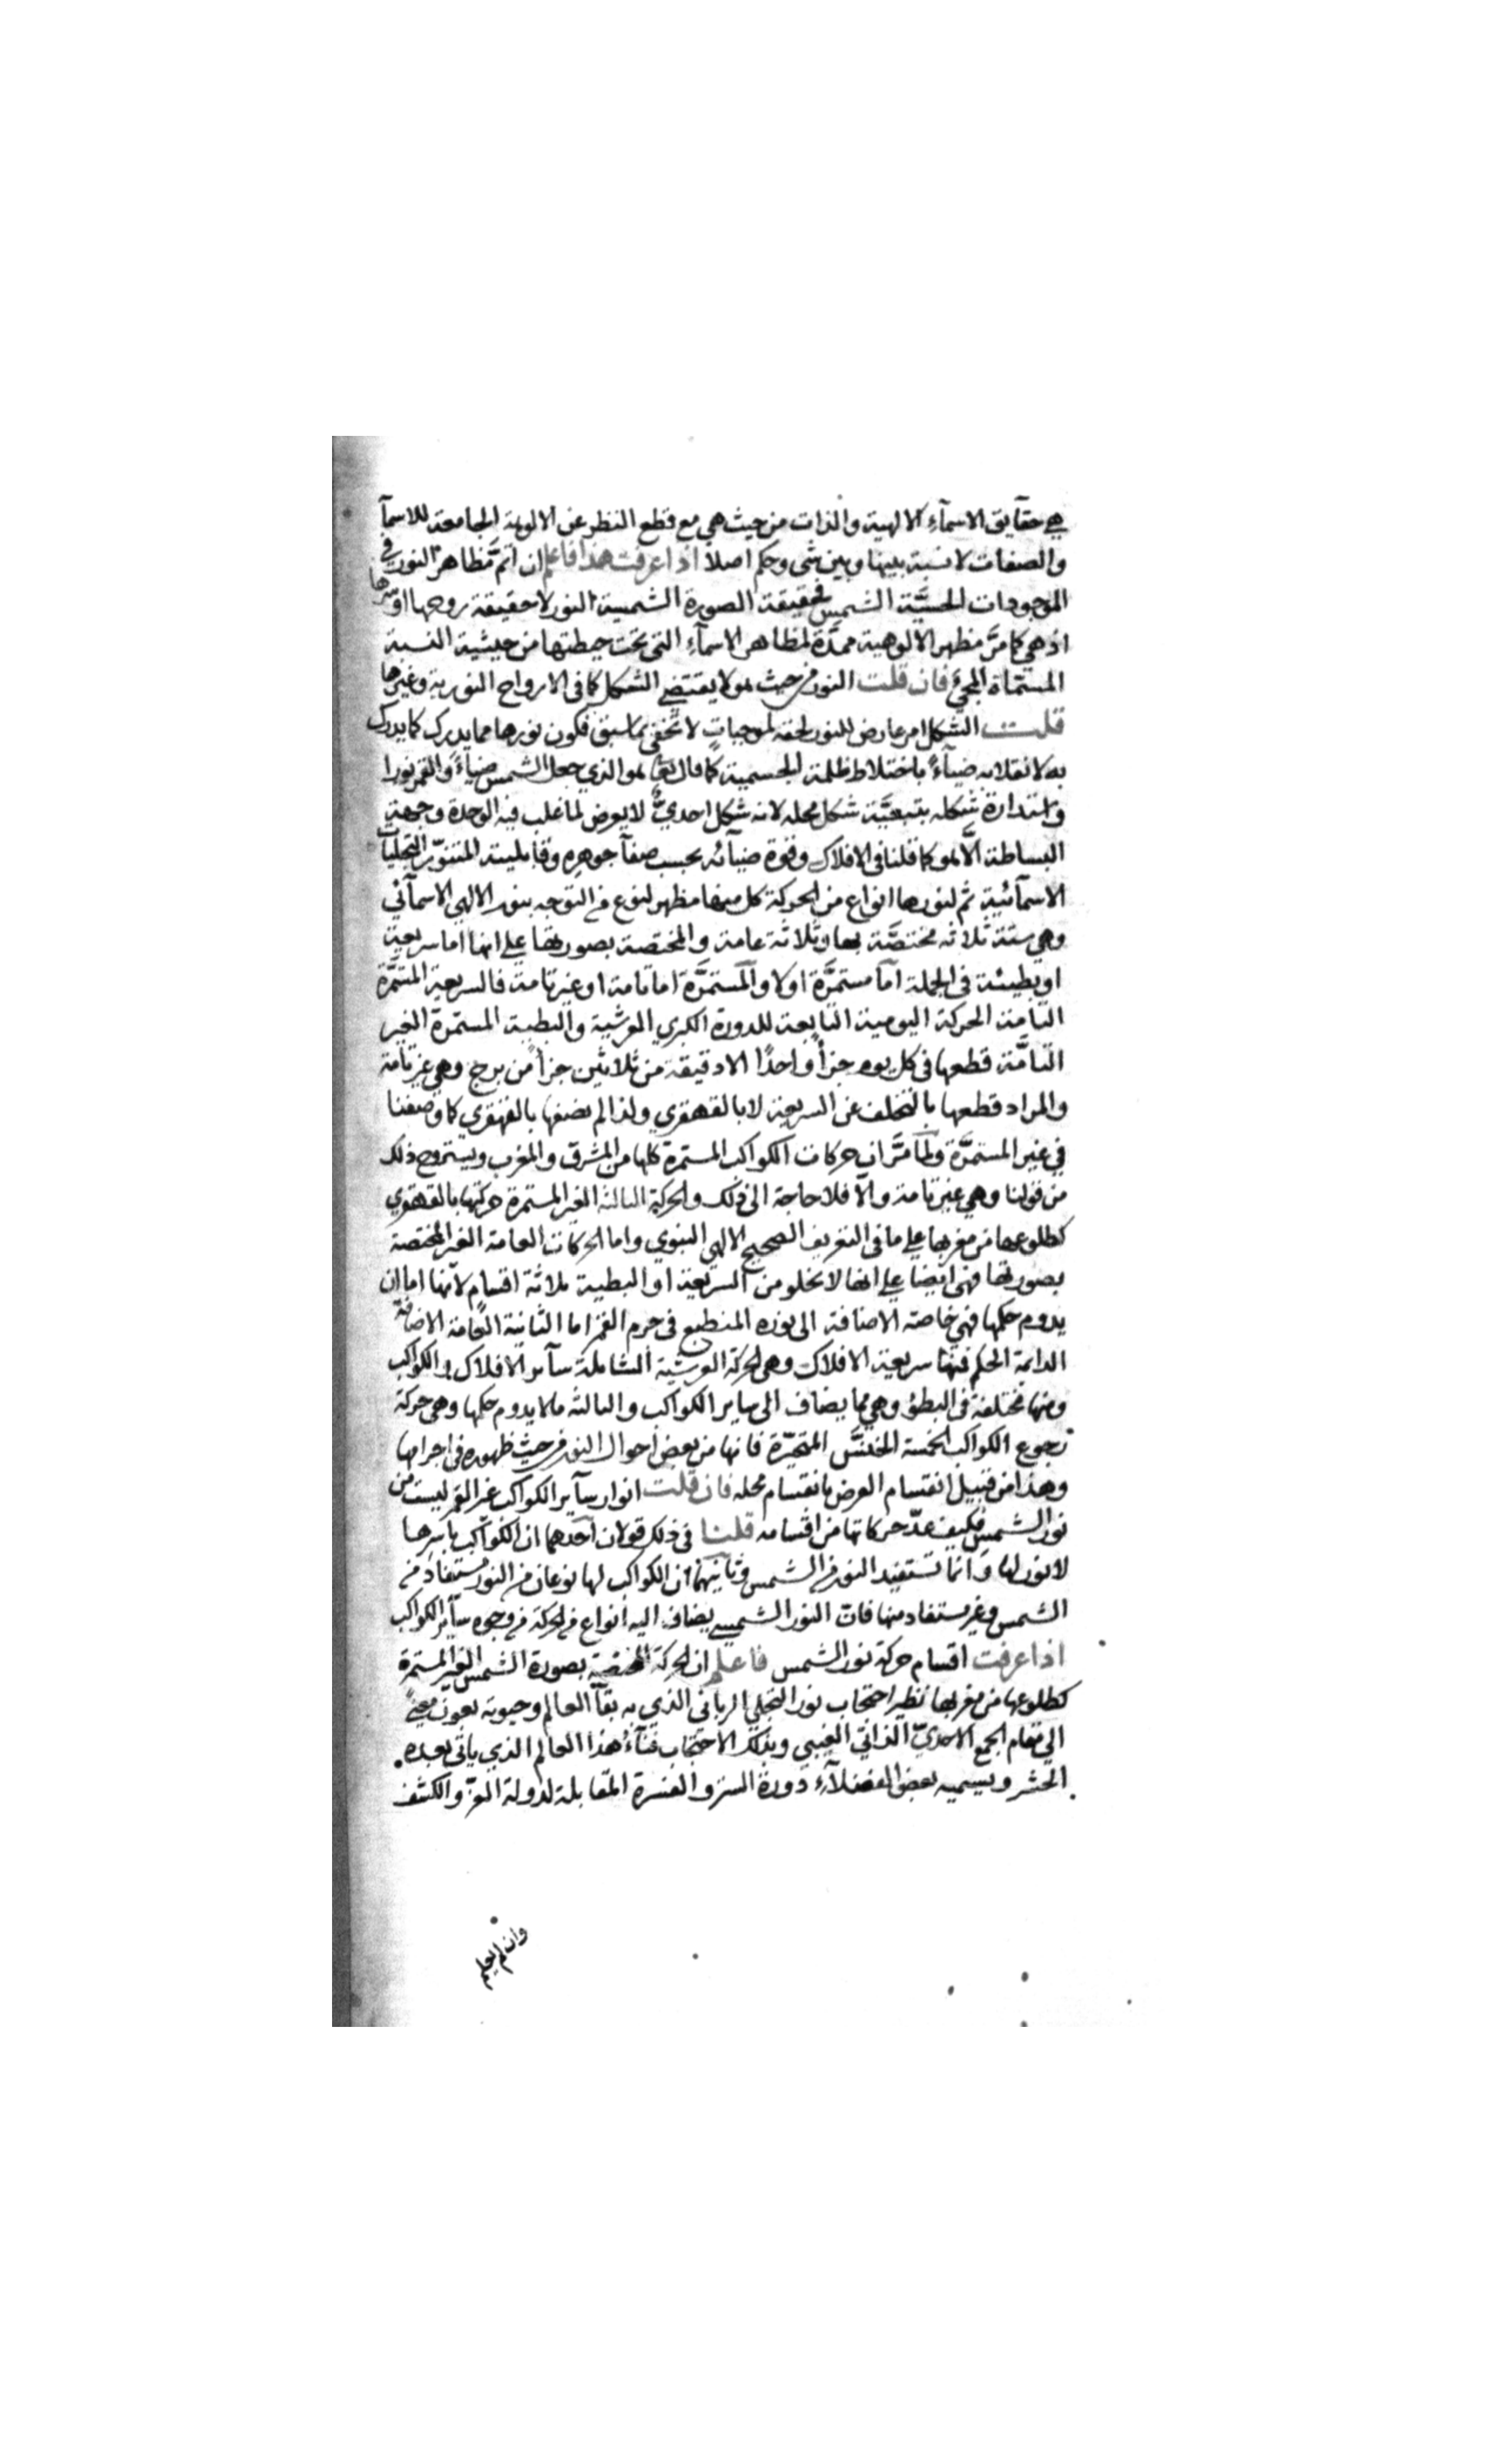 هي حقايق الاسمآء الالهية والذات من حيث هي مع قطع النظر عن الالوهة الجامعة للاسمآ
والصفات لا نسبة بينها وبين شى وحكم اصلا اذا عرفت هذا فاعلم ان اتمّ مظاهر النور في
الموجودات الحسيَّة الشمس فحقيقة الصورة الشمسية النور لا حقيقة روحها او سرها
اذ هي كما مرَّ مظهر الالوهية ممدَّة لمظاهر الاسمآء التي تحت حيطتها من حيثية النسبة
المسمّاة المحيي فان قلت النور من حيث هو لا يقتضي الشكل كما في الارواح النورية وغيرها
قلت الشكل امر عارض للنور لحقه لموجبات لا تخفى مما سبق فكون نورها مما يدرك كما يدرك
به لانقلابه ضيآءً باختلاط ظلمة الجسمية كما قال تعالى هو الذي جعل الشمس ضيآءً والقمر نورا
واستدارة شكله بتبعيَّة شكل محله لانه شكل احديٌّ لا يعرض لما غلب فيه الوحدة وجهة
البساطة الَّا هو كما قلنا في الافلاك وقوة ضيآئه بحسب صفآ جوهره وقابليته المتنوّر التجليات
الاسمآئية ثم لنورها انواع من الحركة كل منها مظهر لنوع من التوجه بنور الالهي الاسمآئي
وهي ستة ثلاثه مختصَّة بها وثلاثة عامة والمختصة بصورتها على انها اما سريعة
او بطيئة في الجملة امآ مستمرَّة اولا والمستمرَّة اما تامة او غير تامة فالسريعة المستمرَّة
التامة الحركة اليومية التابعة للدورة الكبري العرشية والبطية المستمرة الغير
التامَّة قطعها في كل يوم جزأ واحدًا الا دقيقة من ثلاثين جزأ من برج وهي غير تامة
والمراد قطعها بالتخلف عن السريعة لا بالقهقري ولذا لم نصفها بالقهقري كما وصفنا
في غير المستمرَّة ولما مرَّ ان حركات الكواكب المستمرة كلها من المشرق والمغرب ويستروح ذلك
من قولنا وهي غير تامة والَّا فلا حاجة الى ذلك والحركة الثالثة الغير المستمرة حركتها بالقهقري
كطلوعها من مغربها على ما في التعريف الصحيح الالهي النبوي واما الحركات العامة الغير المختصة
بصورتها فهي ايضا على انها لا تخلو من السريعة او البطية ثلاثة اقسام لانها اما ان
يدوم حكمها فهي خاصة الاضافة الى نوره المنطبع في جرم القمر اما الثانية العامة الاضافة
الدائمة الحكم فمنها سريعة الافلاك وهي الحركة العرشية الشاملة سآير الافلاك والكواكب
ومنها مختلفة في البطؤ وهي مما يضاف الى ساير الكواكب والثالثة ما لا يدوم حكمها وهي حركة
رجوع الكواكب الخمسة الخنس المتحيّرة فانها من بعض احوال النور من حيث ظهوره في اجرامها
وهذا من قبيل انقسام العرض بانقسام محله فان قلت انوار سآير الكواكب غير القمر ليست من
نور الشمس فكيف عدّ حركاتها من اقسامه قلنا في ذلك قولان احدهما ان الكواكب باسرها
لا نور لها وانما تستفيد النور من الشمس وثانيهما ان الكواكب لها نوعان من النور مستفاد من
الشمس وغير مستفاد منها فان النور الشمسي يضاف اليه انواع من الحركة من وجوه سآير الكواكب
اذا عرفت اقسام حركة نور الشمس فاعلم ان الحركة المختصة بصورة الشمس الغير المستمرة
كطلوعها من مغربها نظير احتجاب نور التجلي الرباني الذي به بقآ العالم وحيوته بعون
الى مقام الجمع الاحديّ الذاتي الغيبي وبذلك الاحتجاب فنآء هذا العالم الذي ياتي بعده
الحشر ويسميه بعض الفضلآء دورة الستر والفترة المقابلة لدولة العزّ والكشف
وان لم